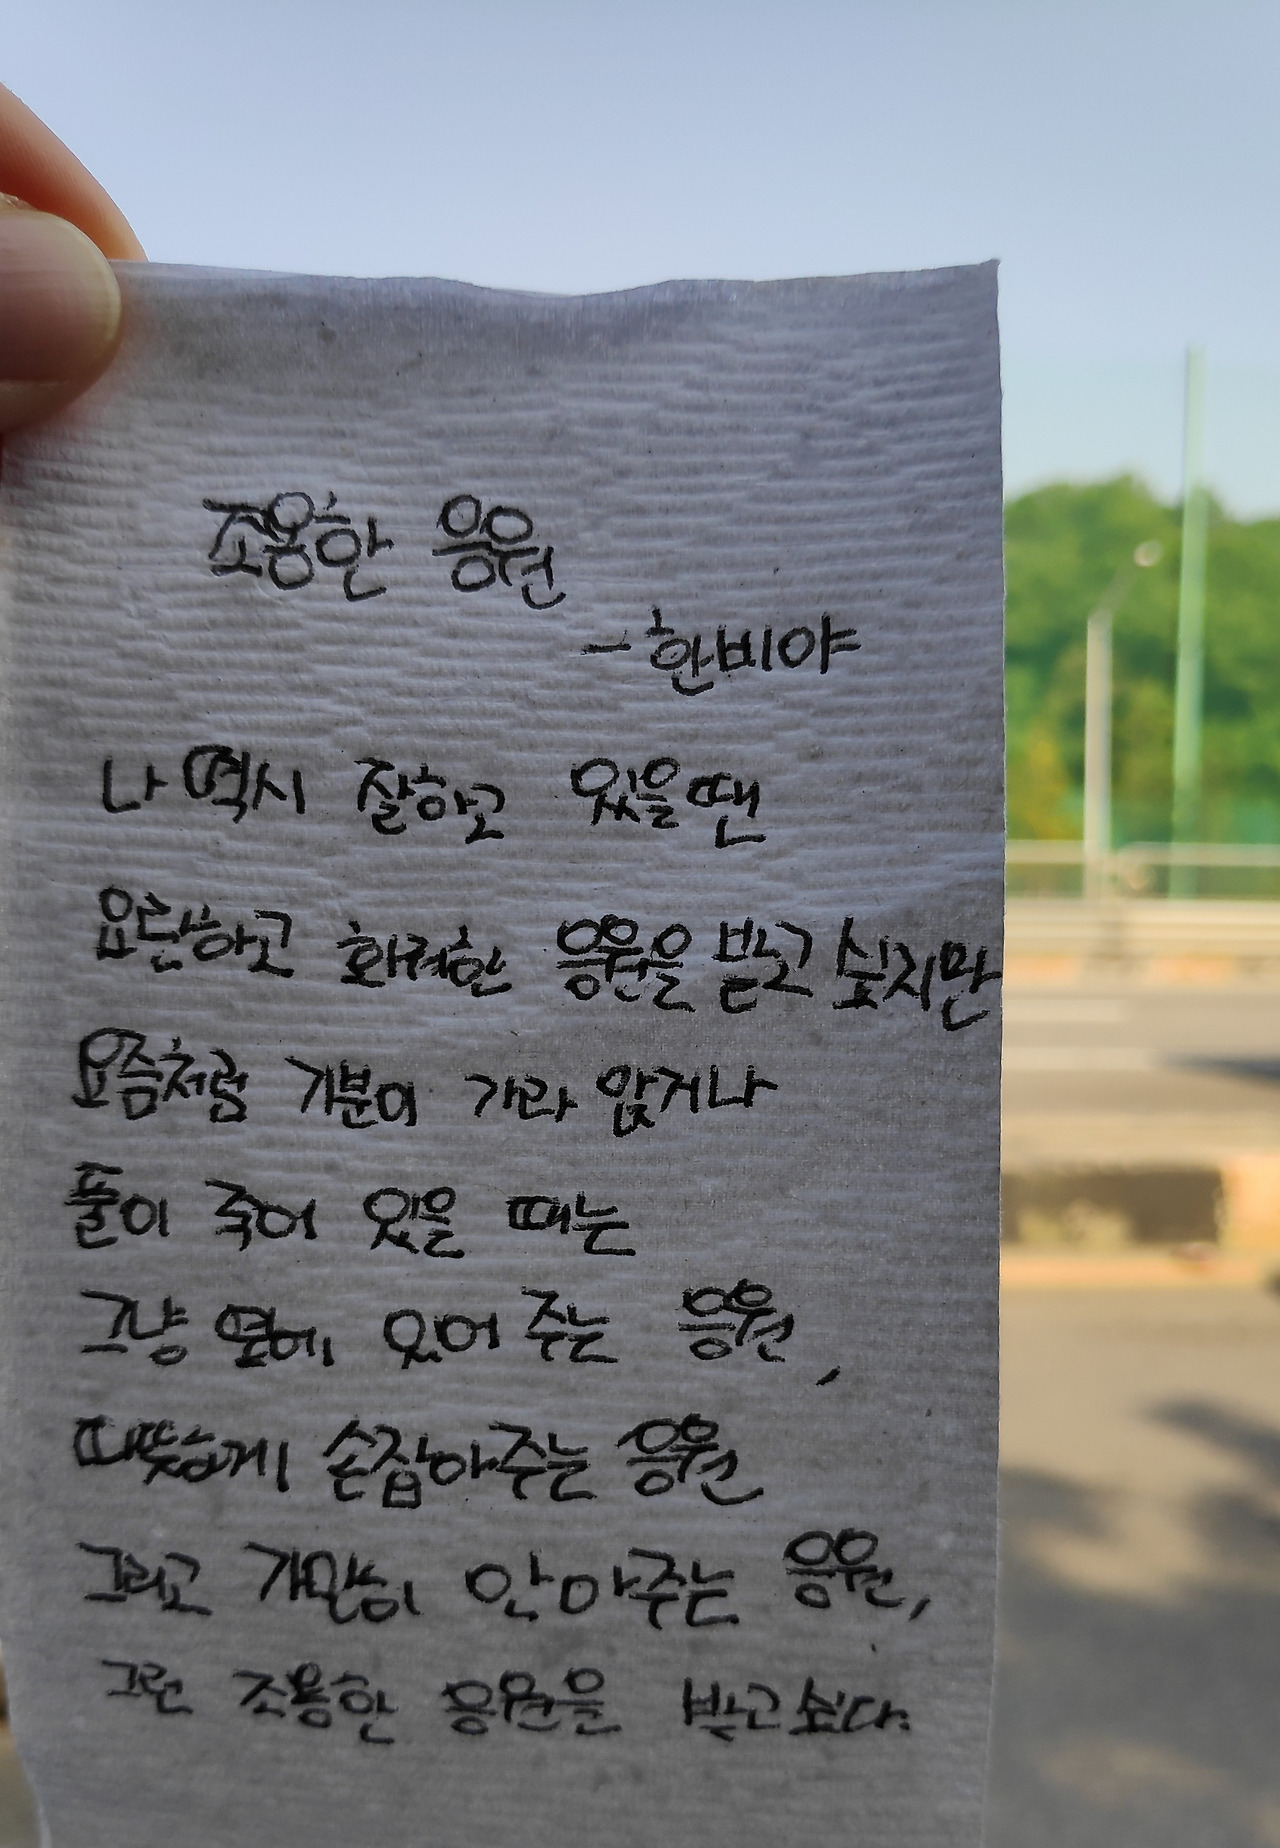 조용한 응원
- 한비야
나 역시 잘하고 있을땐
요란하고 화려한 응원을 받고 싶지만
요즘처럼 기분이 가라 앉거나
풀이 죽어 있을 때는
그냥 옆에 있어 주는 응원,
따뜻하게 손잡아주는 응원
그리고 가만히 안아주는 응원,
그런 조용한 응원을 받고싶다.